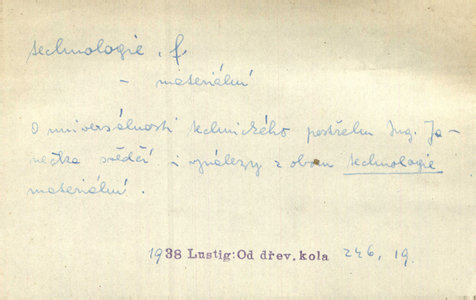 technologie, f.
– materiální
O universálnosti technického postřehu Ing. Ja-
nečka svědčí i vynálezy z oboru technologie
materiální.
1938 Lustig: Od dřev. kola 246, 19.